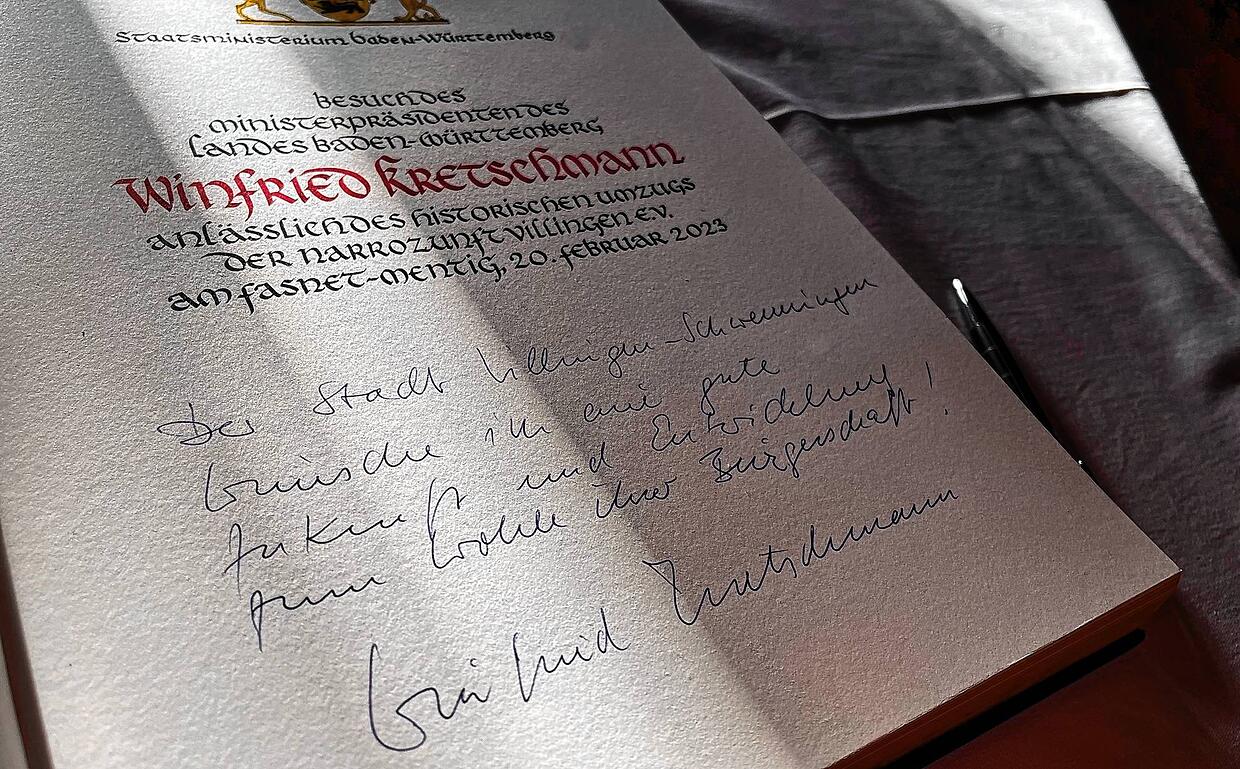 Staatsministerium Baden-Württemberg
Besuch des
Ministerpräsidenten des
Landes Baden-Württemberg,
Winfried Kretschmann
anlässlich des historischen Umzugs
der Narrozunft Villingen e.V.
am Fasnet-Mentig, 20. Februar 2023
Der Stadt Villingen-Schwenningen
wünsche ich eine gute
Zukunft und Entwicklung
zum Wohle ihrer Bürgerschaft!
Winfried Kretschmann